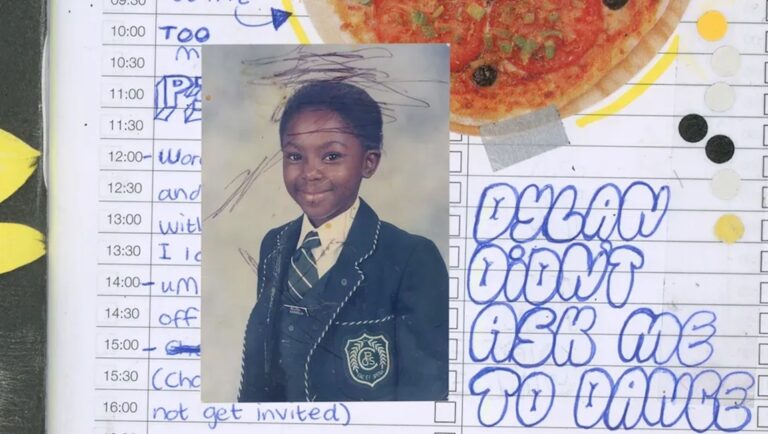 09:30
10:00 TOO
10:30 M
11:00
11:30
12:00 - Wor
12:30 and
13:00 with
13:30 I
14:00 - um
14:30 off
15:00 -
15:30 (Cha
16:00 not get invited)
DYLAN
DiDN'T
ASK ME
TO DANCE